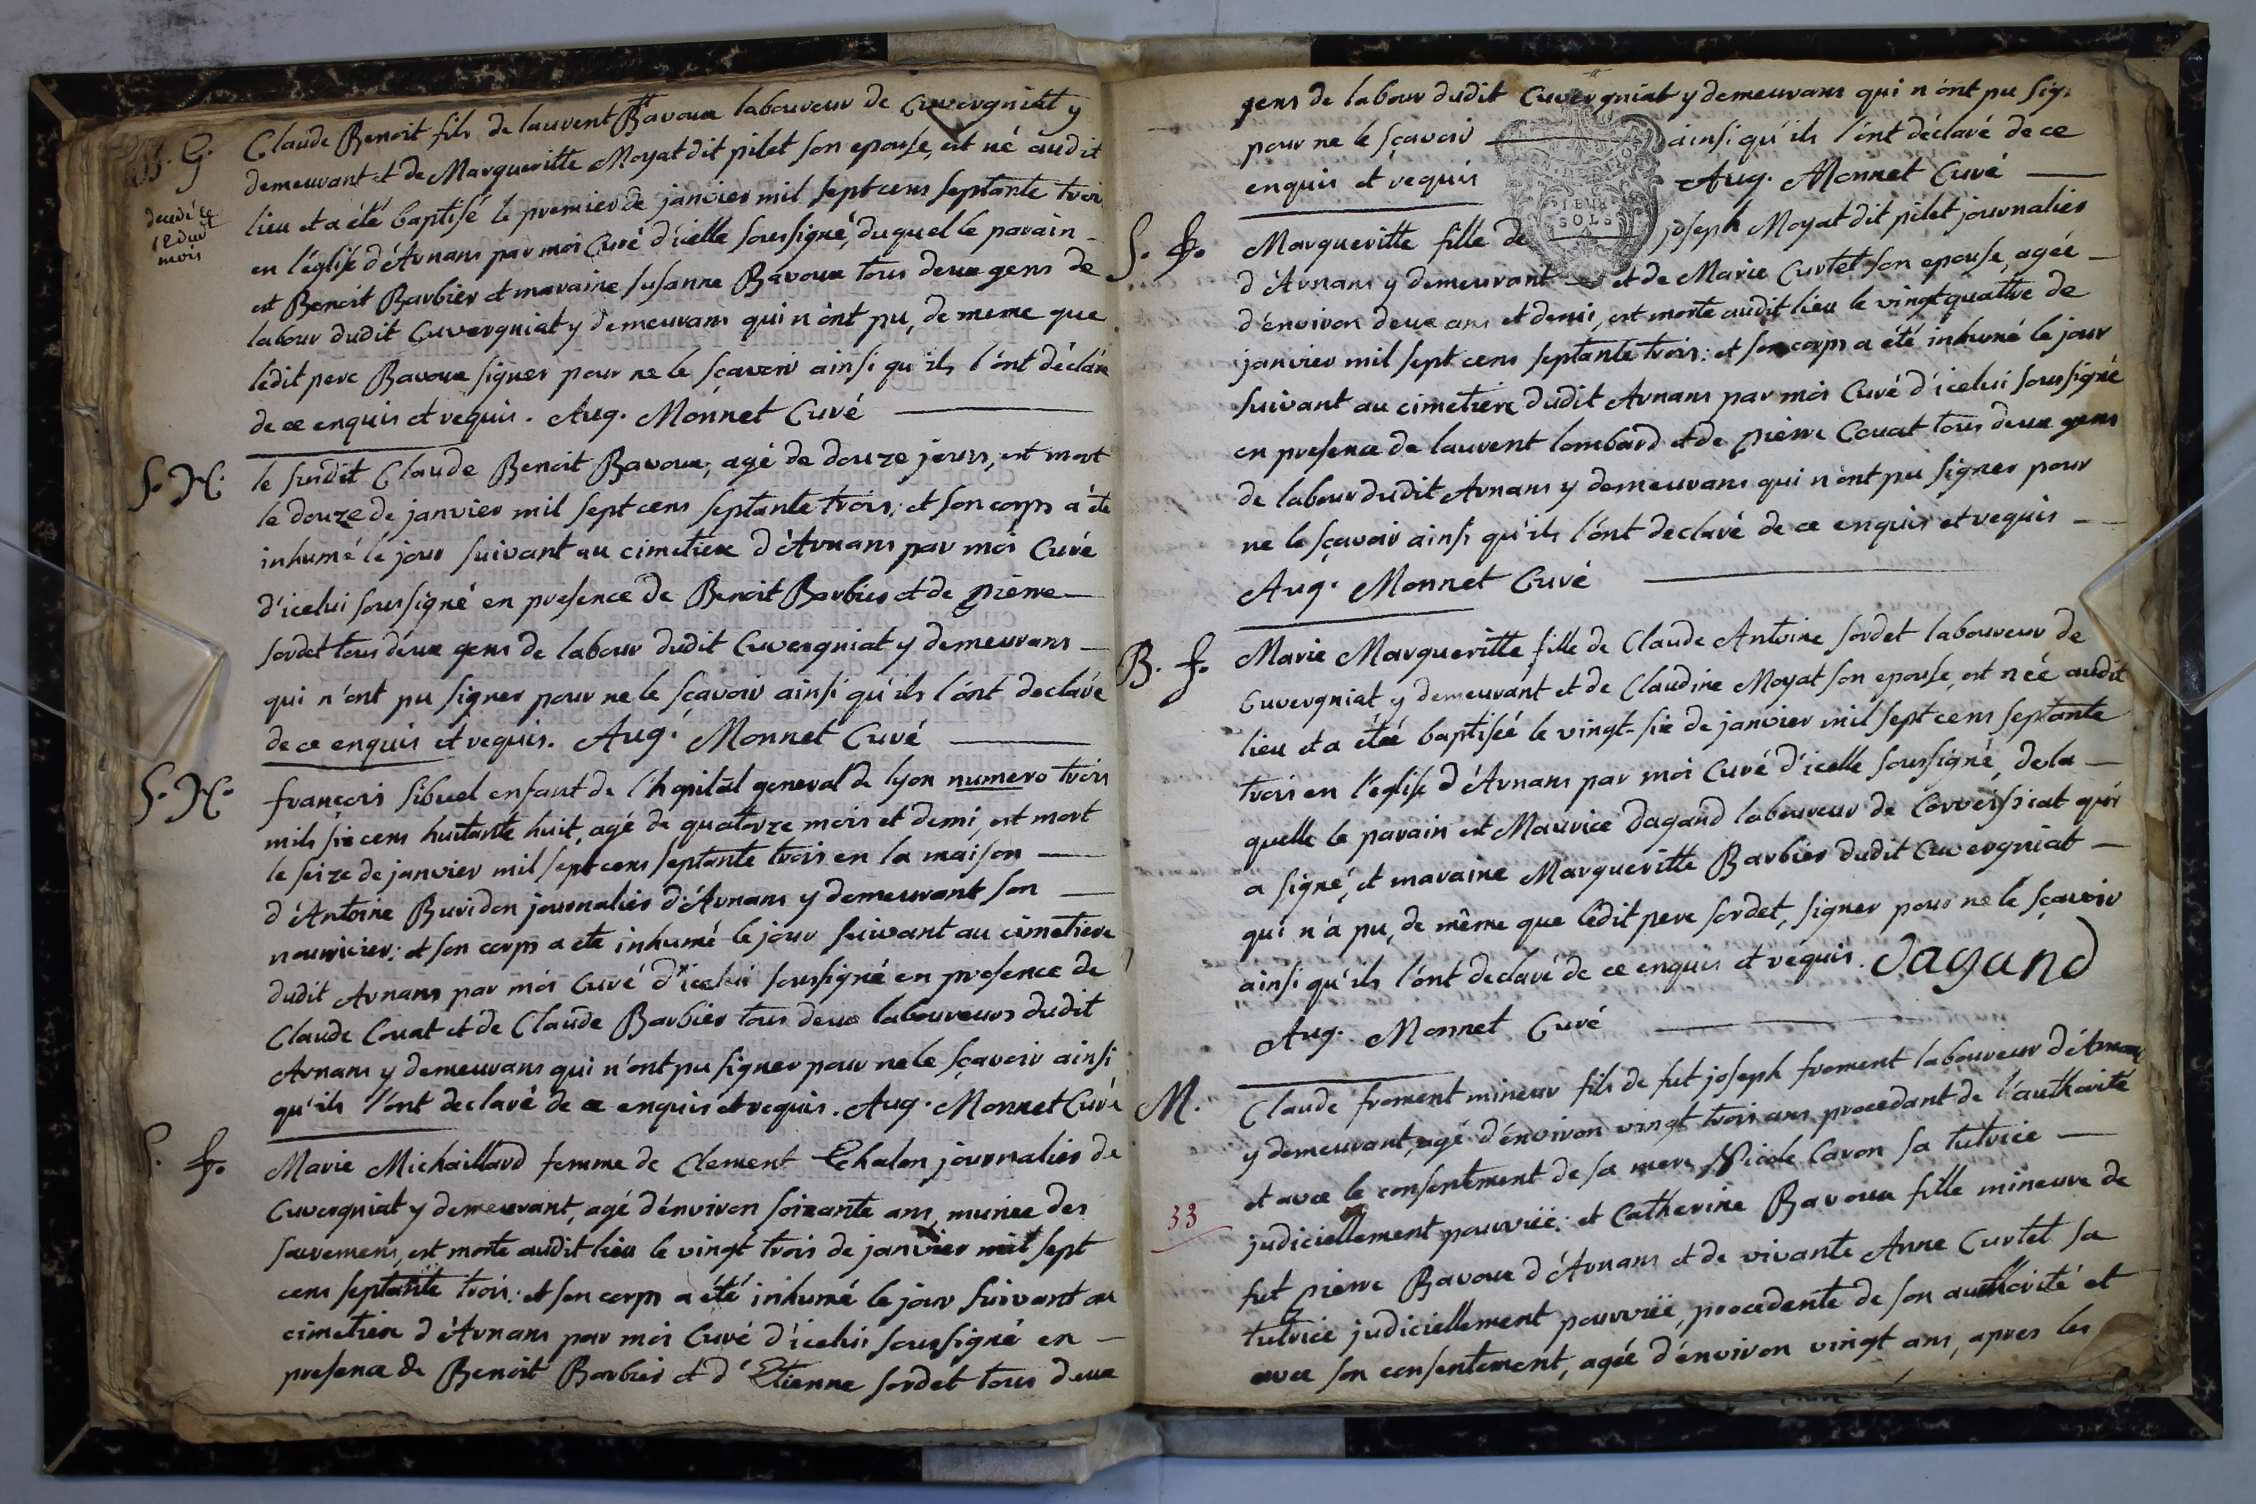 B. G.
Claude Benoit fils de laurent Bavoux laboureur de Cuvergniat y
demeurant et de Margueritte Moyat dit pilet son epouse, est né audit
decedé le
12 dudt
mois
lieu et a été baptisé le premier de janvier mil sept cens septante trois
en l'église d'Arnans par moi Curé d'icelle soussigné, duquel le parain
est Benoit Barbier et maraine susanne Bavoux tous deux gens de
labour dudit Cuvergniat y demeurans qui n'ont pu, de meme que
ledit pere Bavoux signer pour ne le sçavoir ainsi qu'ils l'ont déclaré
de ce enquis et requis. Aug. Monnet Curé
S.
le susdit Claude Benoit Bavoux, agé de douze jours, est mort
le douze de janvier mil sept cens septante trois; et son corps a été
inhumé le jour suivant au cimetiere d'Arnans par moi Curé
d'icelui soussigné en presence de Benoit Barbier et de pierre
sordet tous deux gens de labour dudit Cuvergniat y demeurans
qui n'ont pu signer pour ne le sçavoir ainsi qu'ils l'ont declaré
de ce enquis et requis. Aug. Monnet Curé
S.
françois sibuel enfant de l'hopital general de lyon numero trois
mils six cens huitante huit, agé de quatorze mois et demi, est mort
le seize de janvier mil sept cens septante trois en la maison
d'Antoine Buridon journalier d'Arnans y demeurant son
nouricier; et son corps a ete inhumé le jour suivant au cimetiere
dudit Arnans par moi Curé d'icelui soussigné en presence de
Claude Couat et de Claude Barbier tous deux laboureurs dudit
Arnans y demeurans qui n'ont pu signer pour ne le sçavoir ainsi
qu'ils l'ont declaré de ce enquis et requis. Aug. Monnet Curé
S. f.
Marie Michaillard femme de Clement Echalon journalier de
Cuvergniat y demeurant, agé d'environ soixante ans, munie des
sacremens, est morte audit lieu le vingt trois de janvier mil sept
cens septante trois; et son corps a été inhumé le jour suivant au
cimetiere d'Arnans par moi Curé d'icelui soussigné en
presence de Benoit Barbier et d'Etienne sordet tous deux
gens de labour dudit Cuvergniat y demeurans qui n'ont pu sig
pour ne le sçavoir ainsi qu'ils l'ont déclaré de ce
enquis et requis Aug. Monnet Curé
SOLS
S. f.
Margueritte fille de joseph Moyat dit pilet journalier
d'Arnans y demeurant et de Marie Curtet son epouse, agée
d'environ deux ans et demi, est morte audit lieu le vingt quattre de
janvier mil sept cens septante trois; et son corps a été inhumé le jour
suivant au cimetiere dudit Arnans par moi Curé d'icelui soussigné
en presence de laurent lombard et de pierre Couat tous deux gens
de labour dudit Arnans y demeurans qui n'ont pu signer pour
ne le sçavoir ainsi qu'ils l'ont declaré de ce enquis et requis
Aug. Monnet Curé
B. f.
Marie Margueritte fille de Claude Antoine sordet laboureur de
Cuvergniat y demeurant et de Claudine Moyat son epouse, est née audit
lieu et a été baptisée le vingt-six de janvier mil sept cens septante
trois en l'église d'Arnans par moi Curé d'icelle soussigné, de la
quelle le parain est Maurice dagand laboureur de Corveissiat qui
a signé, et maraine Margueritte Barbier dudit Cuvergniat
qui n'a pu, de même que ledit pere sordet, signer pour ne le sçavoir
ainsi qu'ils l'ont declaré de ce enquis et requis. Dagand
Aug. Monnet Curé
M.
Claude froment mineur fils de fut joseph froment laboureur d'Arnans
y demeurant, agé d'environ vingt trois ans procedant de l'authorité
et avec le consentement de sa mere Nicole Caron sa tutrice
33
judiciellement pourvüe; et Catherine Bavoux fille mineure de
fut pierre Bavoux d'Arnans et de vivante Anne Curtet sa
tutrice judiciellement pourvüe, procedente de son authorité et
avec son consentement, agée d'environ vingt ans, apres les